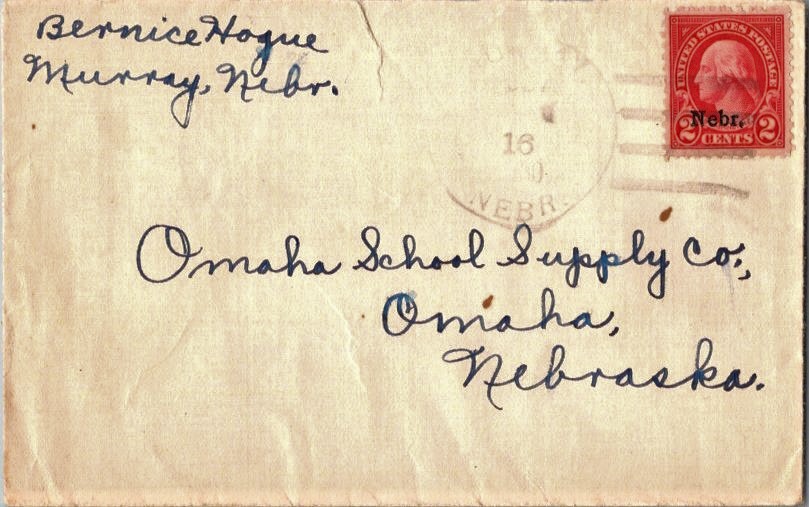 Bernice Hogue
Murray, Nebr.
UNITED STATES POSTAGE
Nebr.
2 CENTS 2
16
NEBR.
Omaha School Supply Co.,
Omaha,
Nebraska.